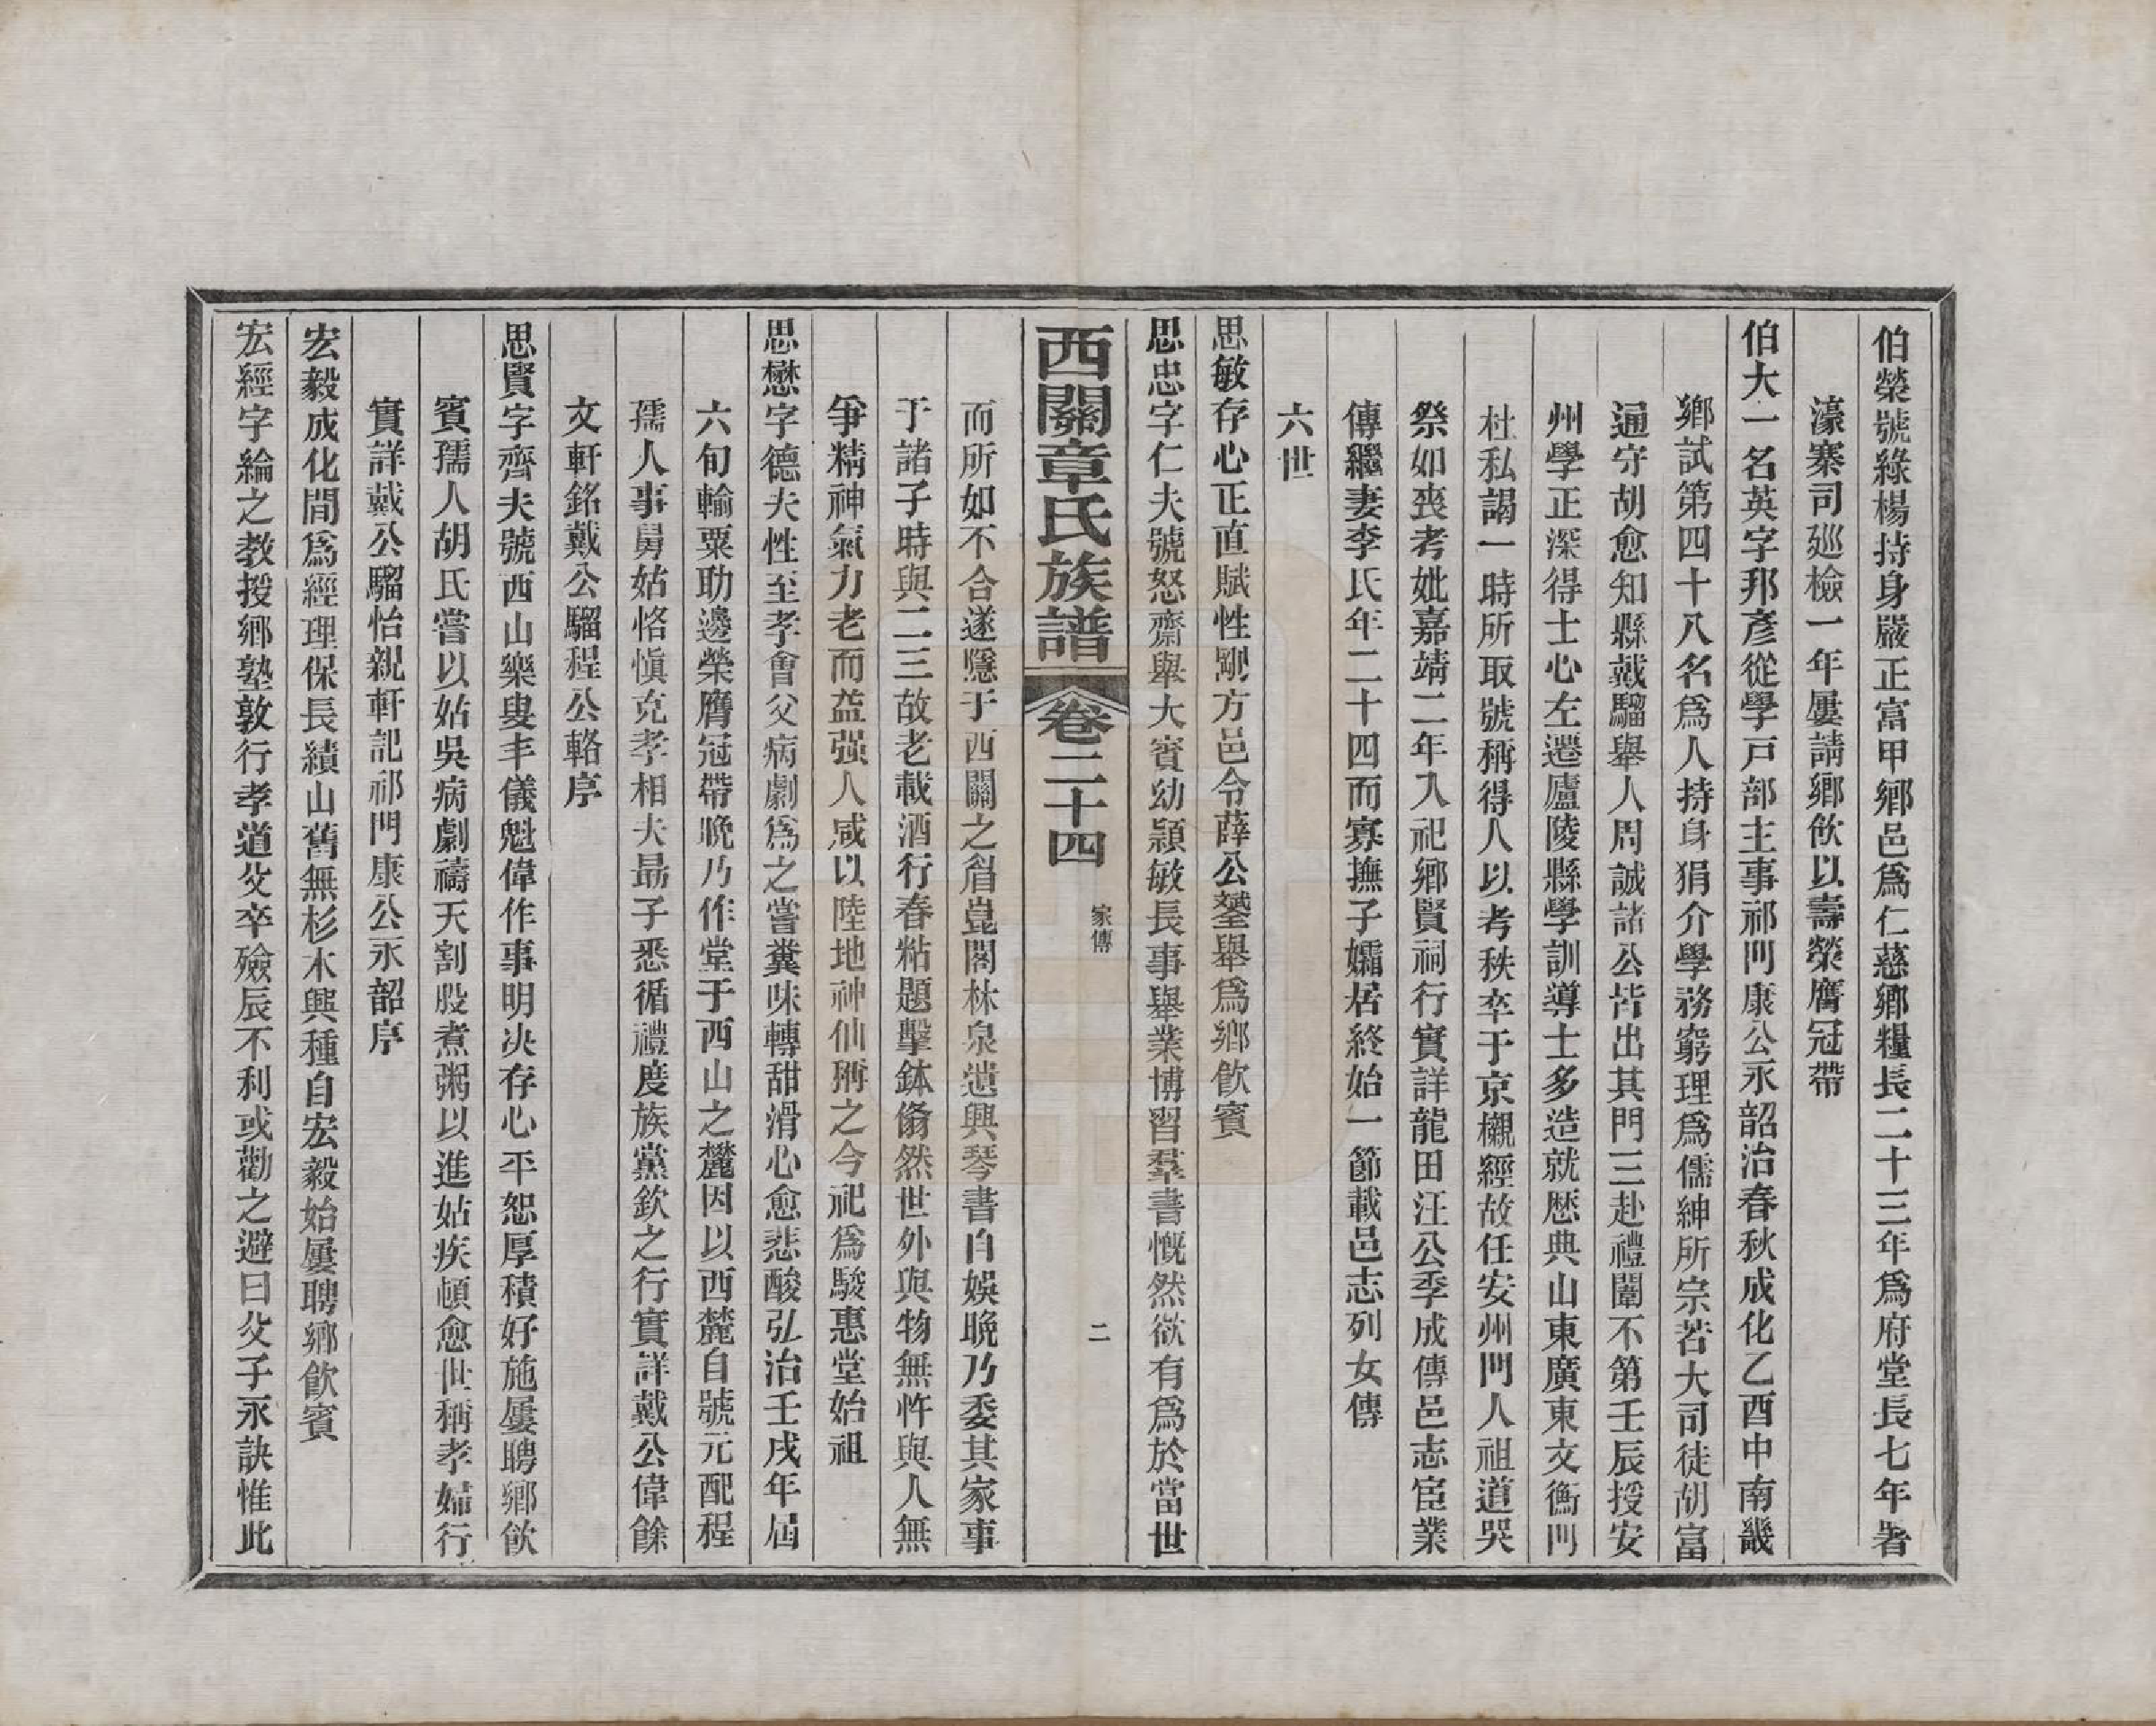 伯榮號綠楊持身嚴正富甲鄉邑爲仁慈鄉糧長二十三年爲府堂長七年署
濠寨司廵檢一年屢請鄉飲以壽榮膺冠帶
伯大一名英字邦彥從學戸部主事祁門康公永韶治春秋成化乙酉中南畿
鄉試第四十八名爲人持身狷介學務窮理爲儒紳所宗若大司徒胡富
通守胡愈知縣戴騮舉人周誠諸公皆出其門三赴禮闈不第壬辰授安
州學正深得士心左遷廬陵縣學訓導士多造就歷典山東廣東文衡門
杜私謁一時所取號稱得人以考秩卒于京櫬經故任安州門人祖道哭
祭如喪考妣嘉靖二年入祀鄉賢祠行實詳龍田汪公季成傳邑志宦業
傳繼妻李氏年二十四而寡撫子孀居終始一節載邑志列女傳
六世
思敏存心正直賦性剛方邑令薛公鑾舉爲鄉飲賓
思忠字仁夫號怒齋舉大賓幼穎敏長事舉業博習羣書慨然欲有爲於當世
西關章氏族譜 卷二十四 家傳 二
而所如不合遂隱于西關之眉崑閣林泉遣興琴書自娛晚乃委其家事
于諸子時與二三故老載酒行春粘題擊鉢翛然世外與物無忤與人無
爭精神氣力老而益强人咸以陸地神仙稱之今祀爲駿惠堂始祖
思懋字德夫性至孝會父病劇爲之嘗糞味轉甜滑心愈悲酸弘治壬戌年屆
六旬輸粟助邊榮膺冠帶晩乃作堂于西山之麓因以西麓自號元配程
孺人事舅姑恪愼克孝相夫勗子悉循禮度族黨欽之行實詳戴公偉餘
文軒銘戴公騮程公輅序
思賢字齊夫號西山樂叟丰儀魁偉作事明决存心平恕厚積好施屢聘鄉飲
賓孺人胡氏嘗以姑吳病劇禱天割股煮粥以進姑疾頓愈世稱孝婦行
實詳戴公騮怡親軒記祁門康公永韶序
宏毅成化間爲經理保長績山舊無杉木興種自宏毅始屢聘鄉飲賓
宏經字綸之教授鄉塾敦行孝道父卒殮辰不利或勸之避曰父子永訣惟此